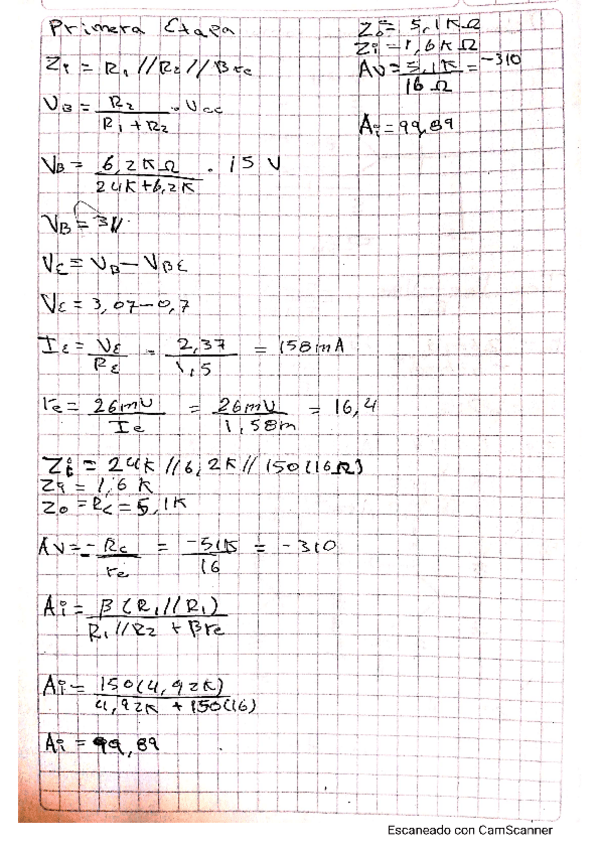 Primera Etapa
Zi = R1 // R2 // Bre
VB = R2 / R1 + R2 · Vcc
VB = 6,2KΩ / 24K+6,2K · 15 V
VB = 3V
VE = VB – VBE
VE = 3,07–0,7
IE = VE / RE = 2,37 / 1,5 = 158mA
re = 26mV / Ie = 26mV / 1,58m = 16,4
Zi = 24K // 6,2K // 150(16Ω)
Zi = 1,6 K
Zo = Rc = 5,1K
Av = -Rc / re = -51K / 16 = -310
Ai = β(R1 // R1) / R1 // R2 + βre
Ai = 150(4,92K) / 4,92K + 150(16)
Ai = 99,89
Zo = 5,1KΩ
Zi = 1,6KΩ
Av = 5,1K / 16Ω = -310
Ai = 99,89
Escaneado con CamScanner